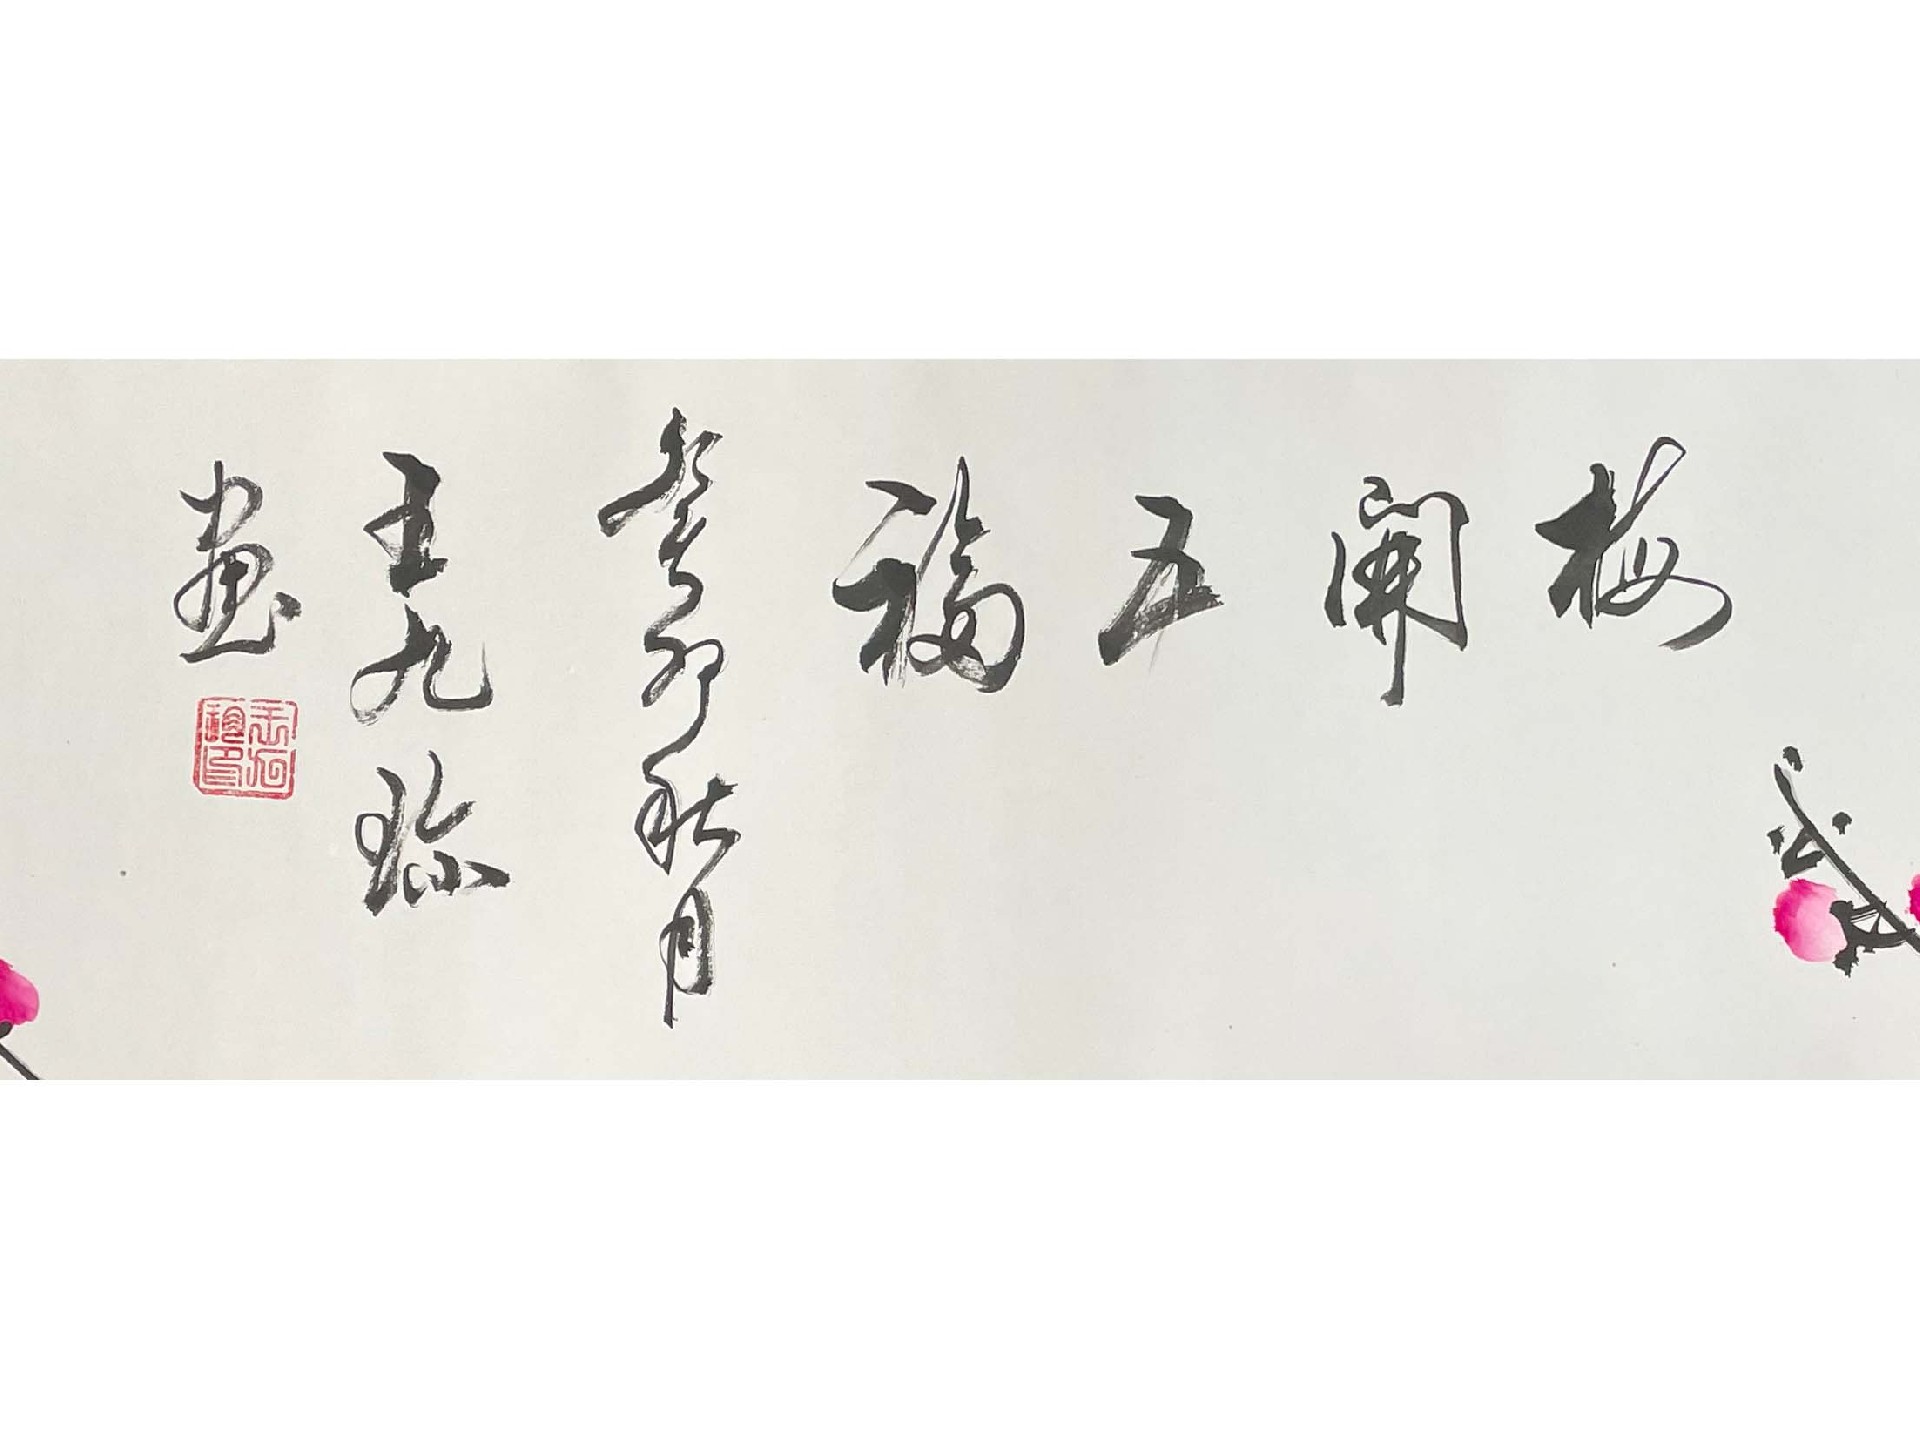 梅開五福
癸卯秋月
王九珎
画